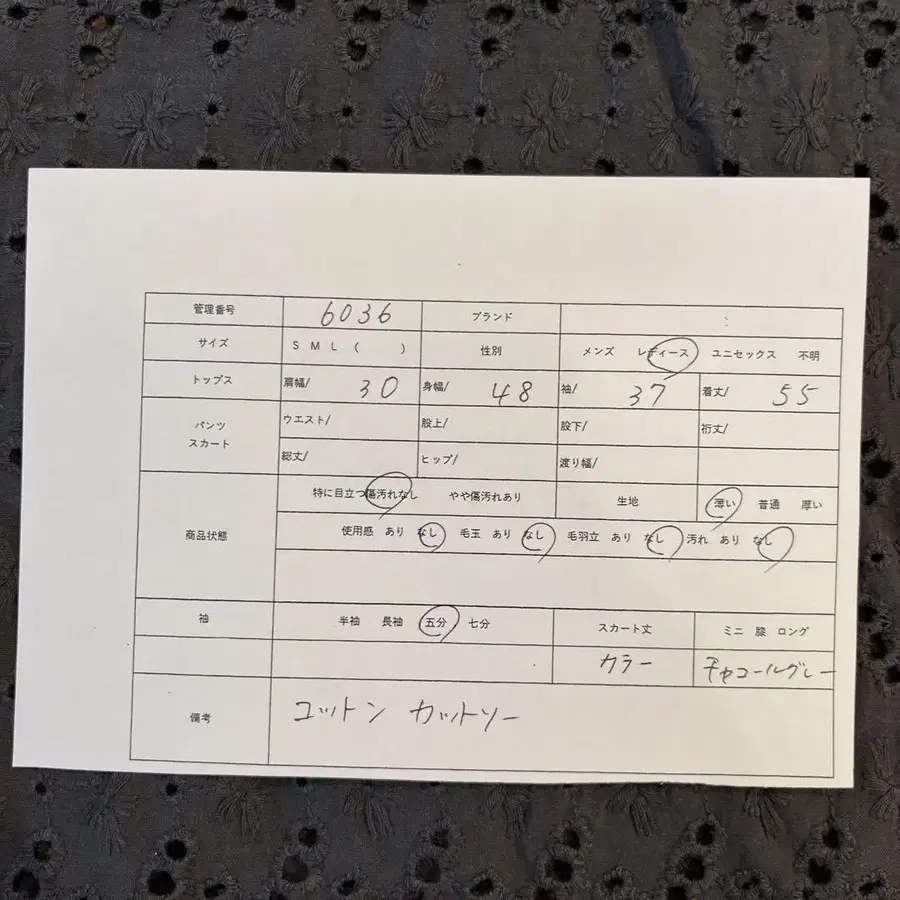 管理番号 6036 ブランド
サイズ S M L ( ) 性別 メンズ レディース ユニセックス 不明
トップス 肩幅/ 30 身幅/ 48 袖/ 37 着丈/ 55
パンツ スカート ウエスト/ 股上/ 股下/ 裄丈/
総丈/ ヒップ/ 渡り幅/
商品状態 特に目立つ傷汚れなし やや傷汚れあり 生地 薄い 普通 厚い
使用感 あり なし 毛玉 あり なし 毛羽立 あり なし 汚れ あり なし
袖 半袖 長袖 五分 七分 スカート丈 ミニ 膝 ロング
カラー チャコールグレー
備考 コットン カットソー